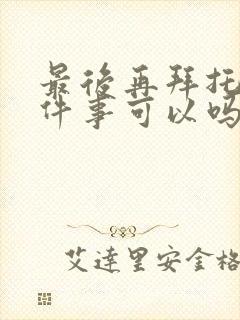 最後再拜托
件事可以吗
艾達里安金格